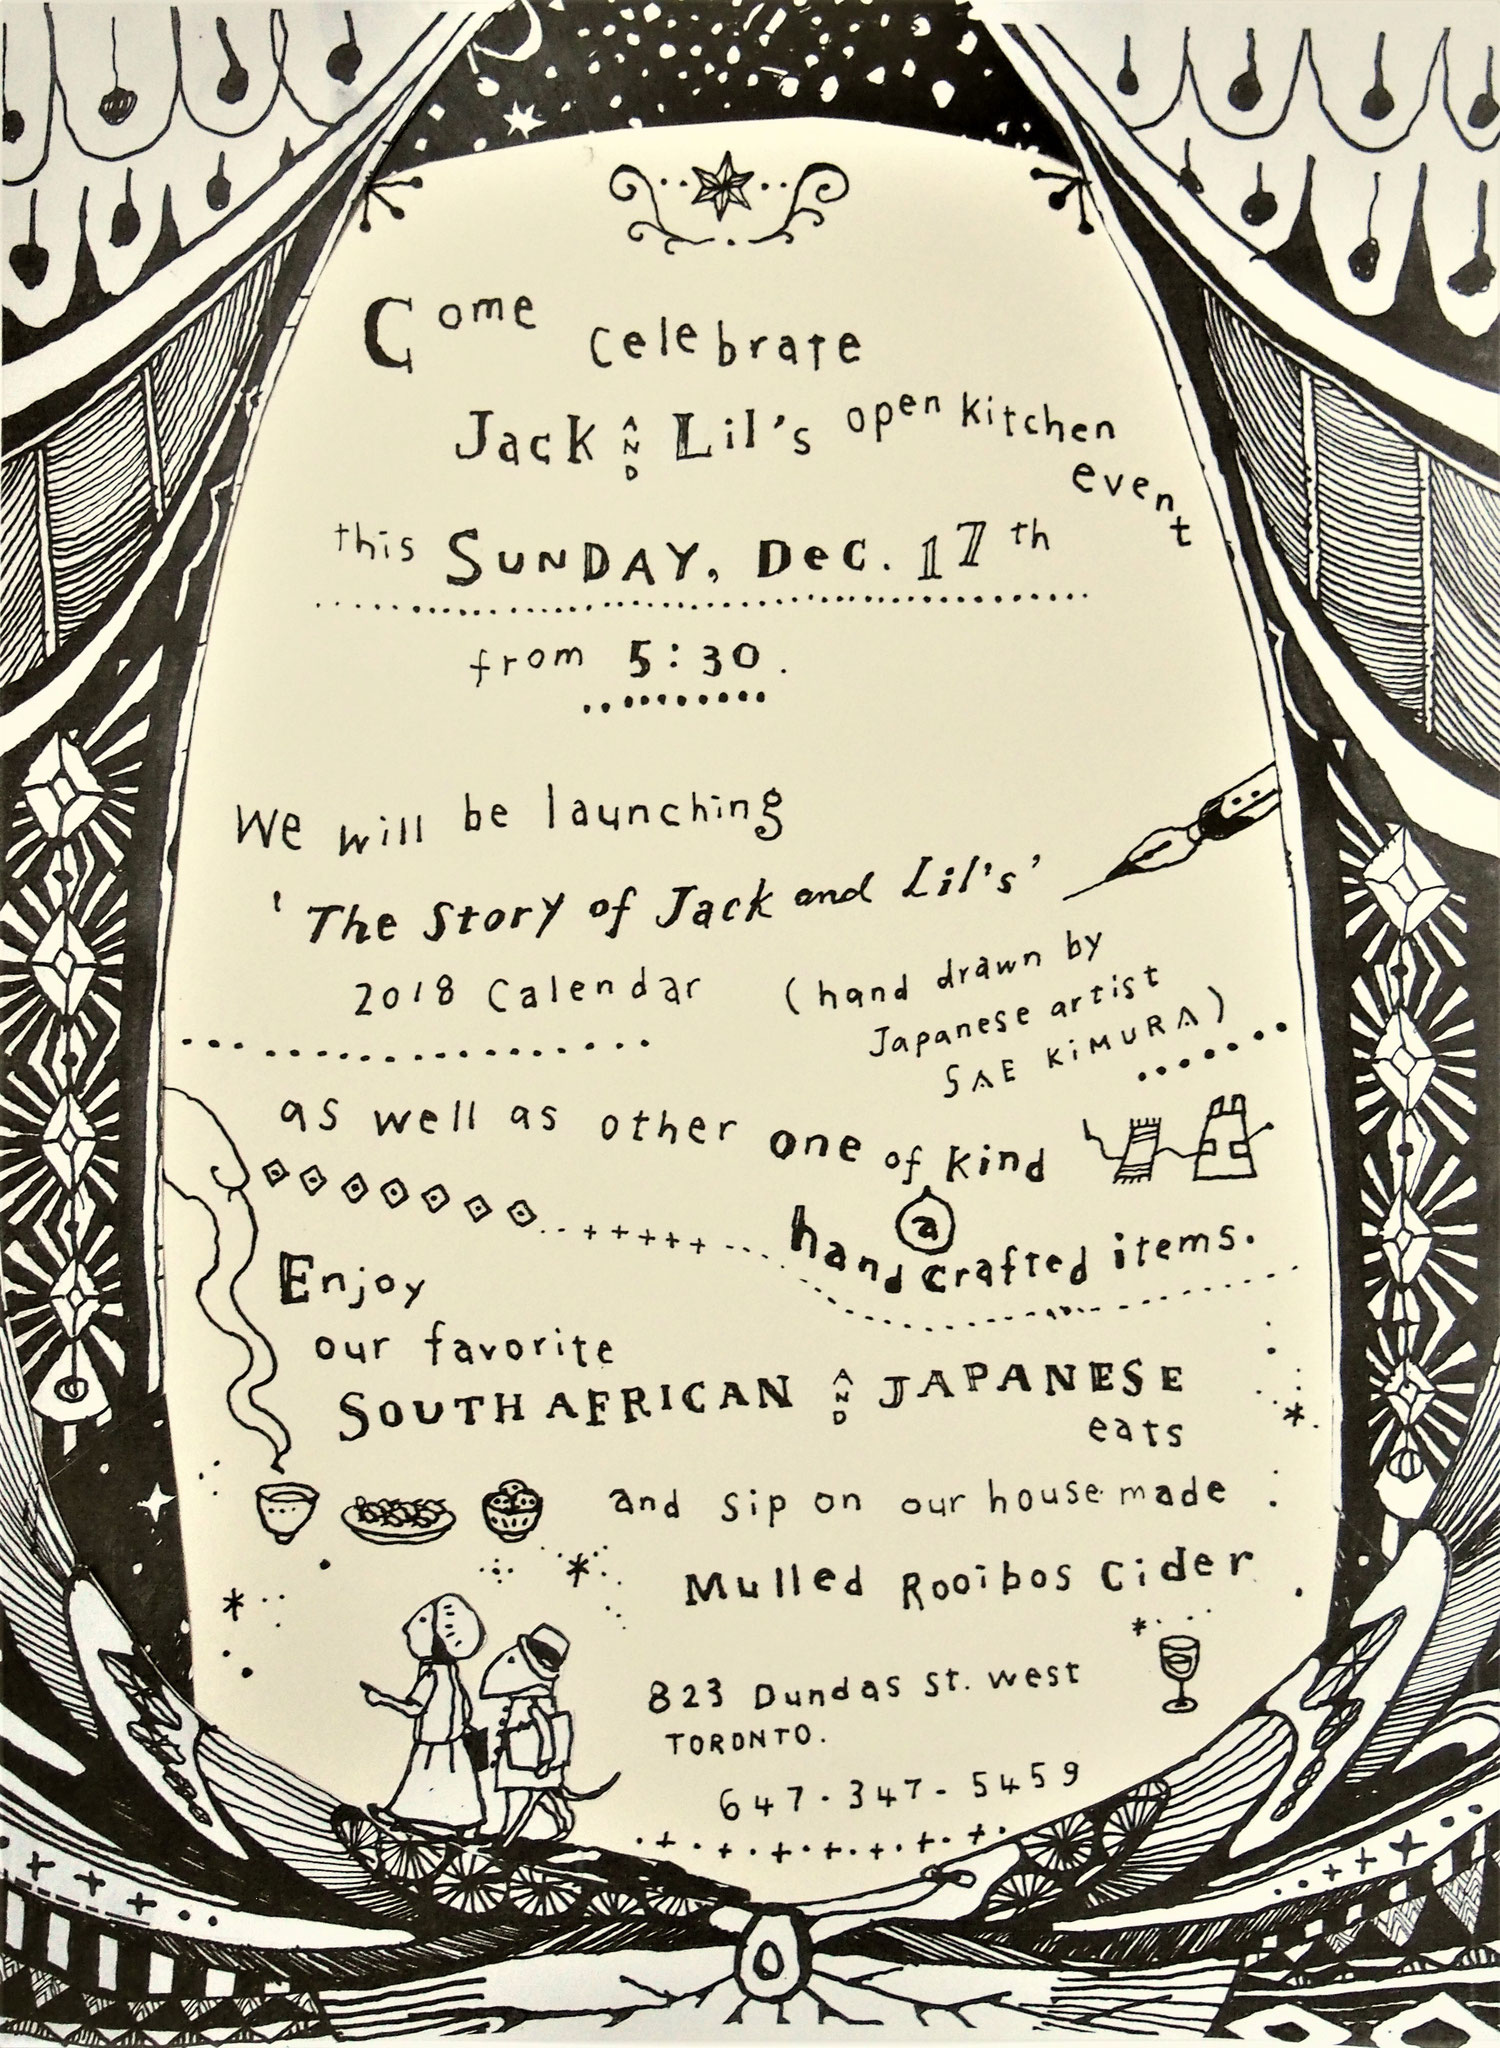 Come celebrate
Jack AND Lil's open kitchen
event
this SUNDAY, Dec. 17th
from 5:30.
We will be launching
'The Story of Jack and Lil's'
2018 Calendar (hand drawn by
Japanese artist
SAE KiMURA)
as well as other one of kind
a
handcrafted items.
Enjoy
our favorite
SOUTH AFRICAN AND JAPANESE
eats
and sip on our house made
Mulled Rooibos Cider
823 Dundas St. West
TORONTO.
647-347-5459